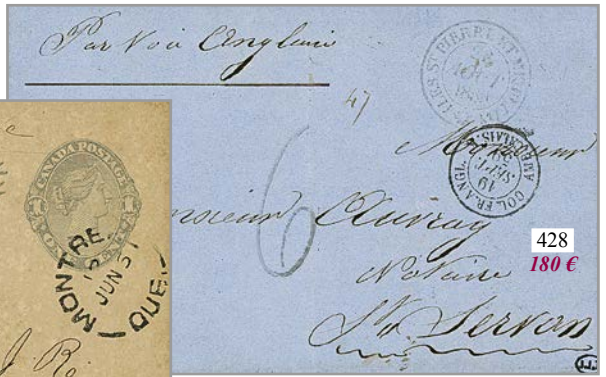 Par Voie Anglaise
47
ILES ST PIERRE ET MIQUELON
AOUT
COL. FR. ANGL. AMB. CALAIS
19
SEPT
Monsieur
Monsieur Auvray
6
Notaire
St Servan
428
180 €
CANADA POSTAGE
MONTREAL
JUN 5
QUE.
J. R.